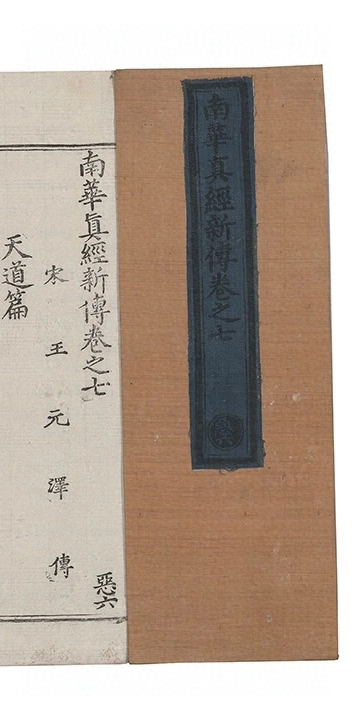 南華真經新傳卷之七
惡六
南華真經新傳卷之七
惡六
宋王元澤傳
天道篇